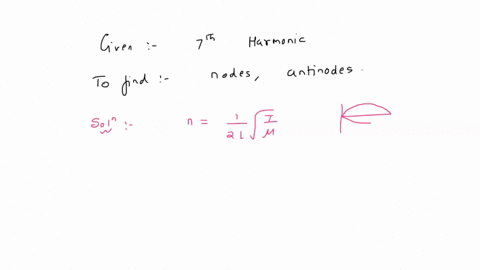 Given :- 7th Harmonic
To find :- nodes, antinodes.
Soln :- n = 1/2l √T/μ